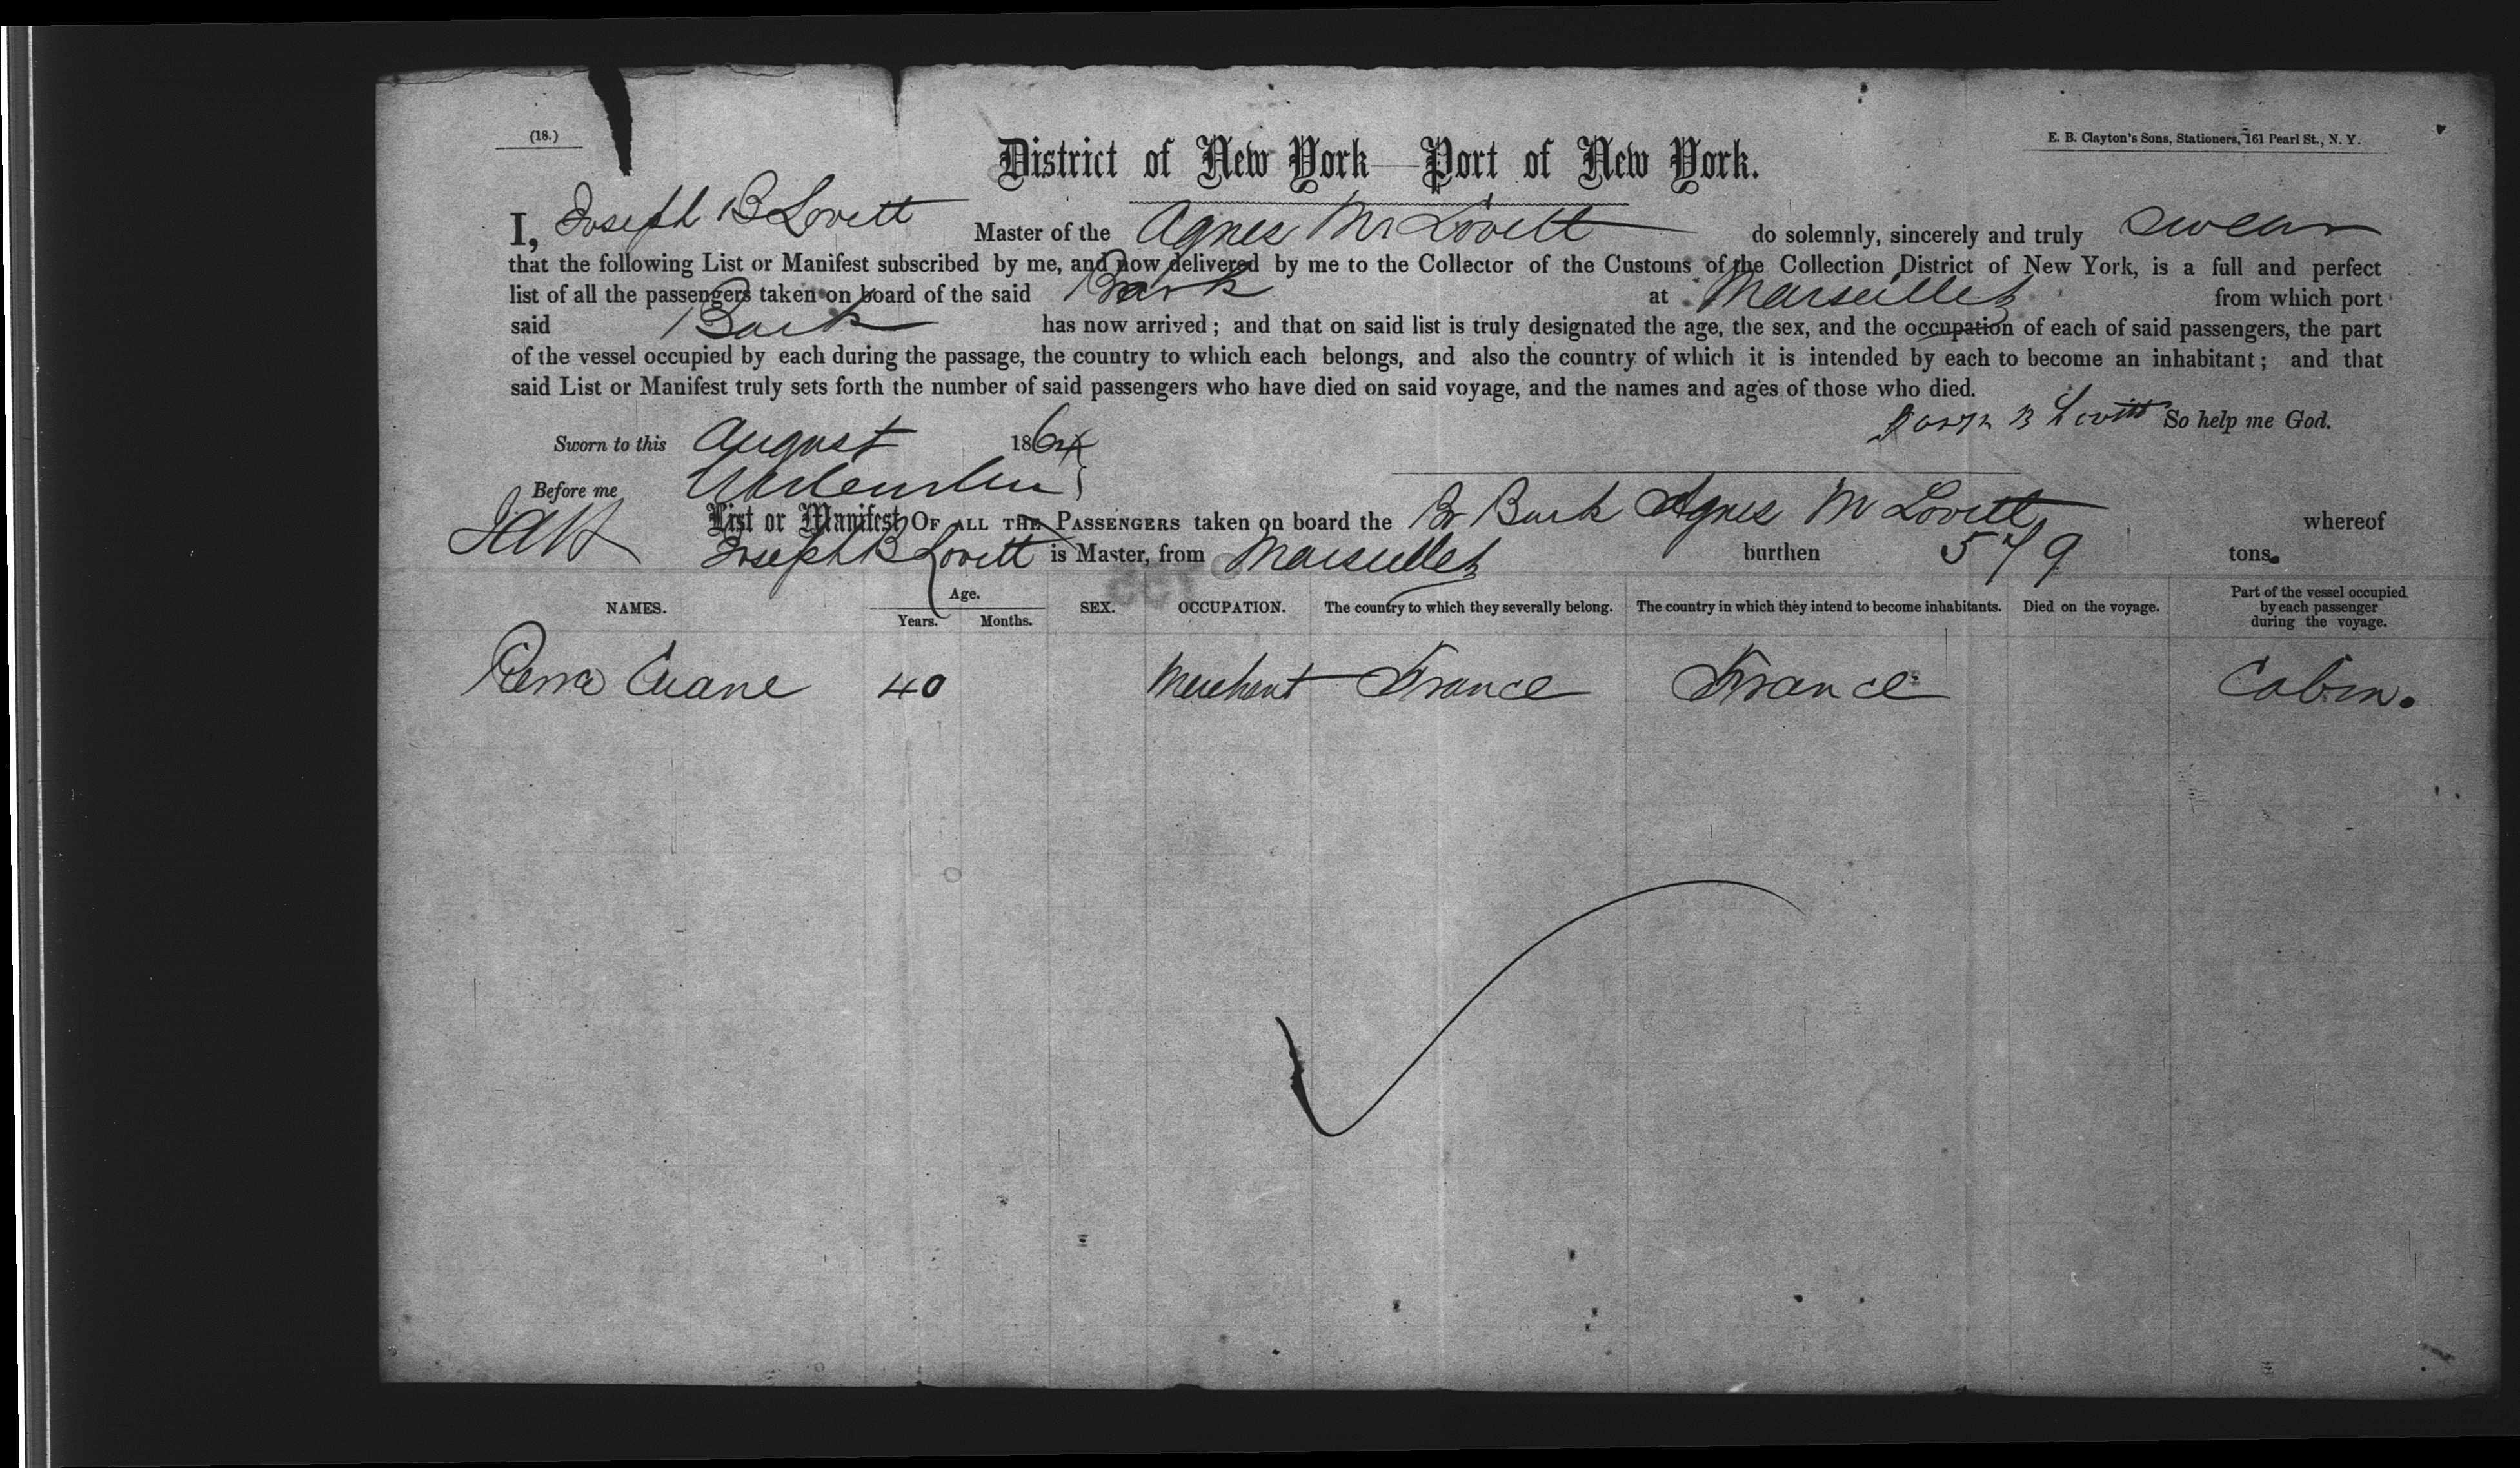 (18.)
E. B. Clayton's Sons, Stationers, 161 Pearl St., N. Y.
District of New York—Port of New York.
I, Joseph B Lovett Master of the Agnes M Lovett do solemnly, sincerely and truly swear
that the following List or Manifest subscribed by me, and now delivered by me to the Collector of the Customs of the Collection District of New York, is a full and perfect
list of all the passengers taken on board of the said Bark at Marseilles from which port
said Bark has now arrived; and that on said list is truly designated the age, the sex, and the occupation of each of said passengers, the part
of the vessel occupied by each during the passage, the country to which each belongs, and also the country of which it is intended by each to become an inhabitant; and that
said List or Manifest truly sets forth the number of said passengers who have died on said voyage, and the names and ages of those who died.
Joseph B Lovitt So help me God.
Sworn to this August 1864
Before me
List or Manifest OF ALL THE PASSENGERS taken on board the Br Bark Agnes M Lovett whereof
Joseph B Lovett is Master, from Marseilles burthen 579 tons.
NAMES. Age. Years. Months. SEX. OCCUPATION. The country to which they severally belong. The country in which they intend to become inhabitants. Died on the voyage. Part of the vessel occupied by each passenger during the voyage.
40 Merchant France France Cabin.